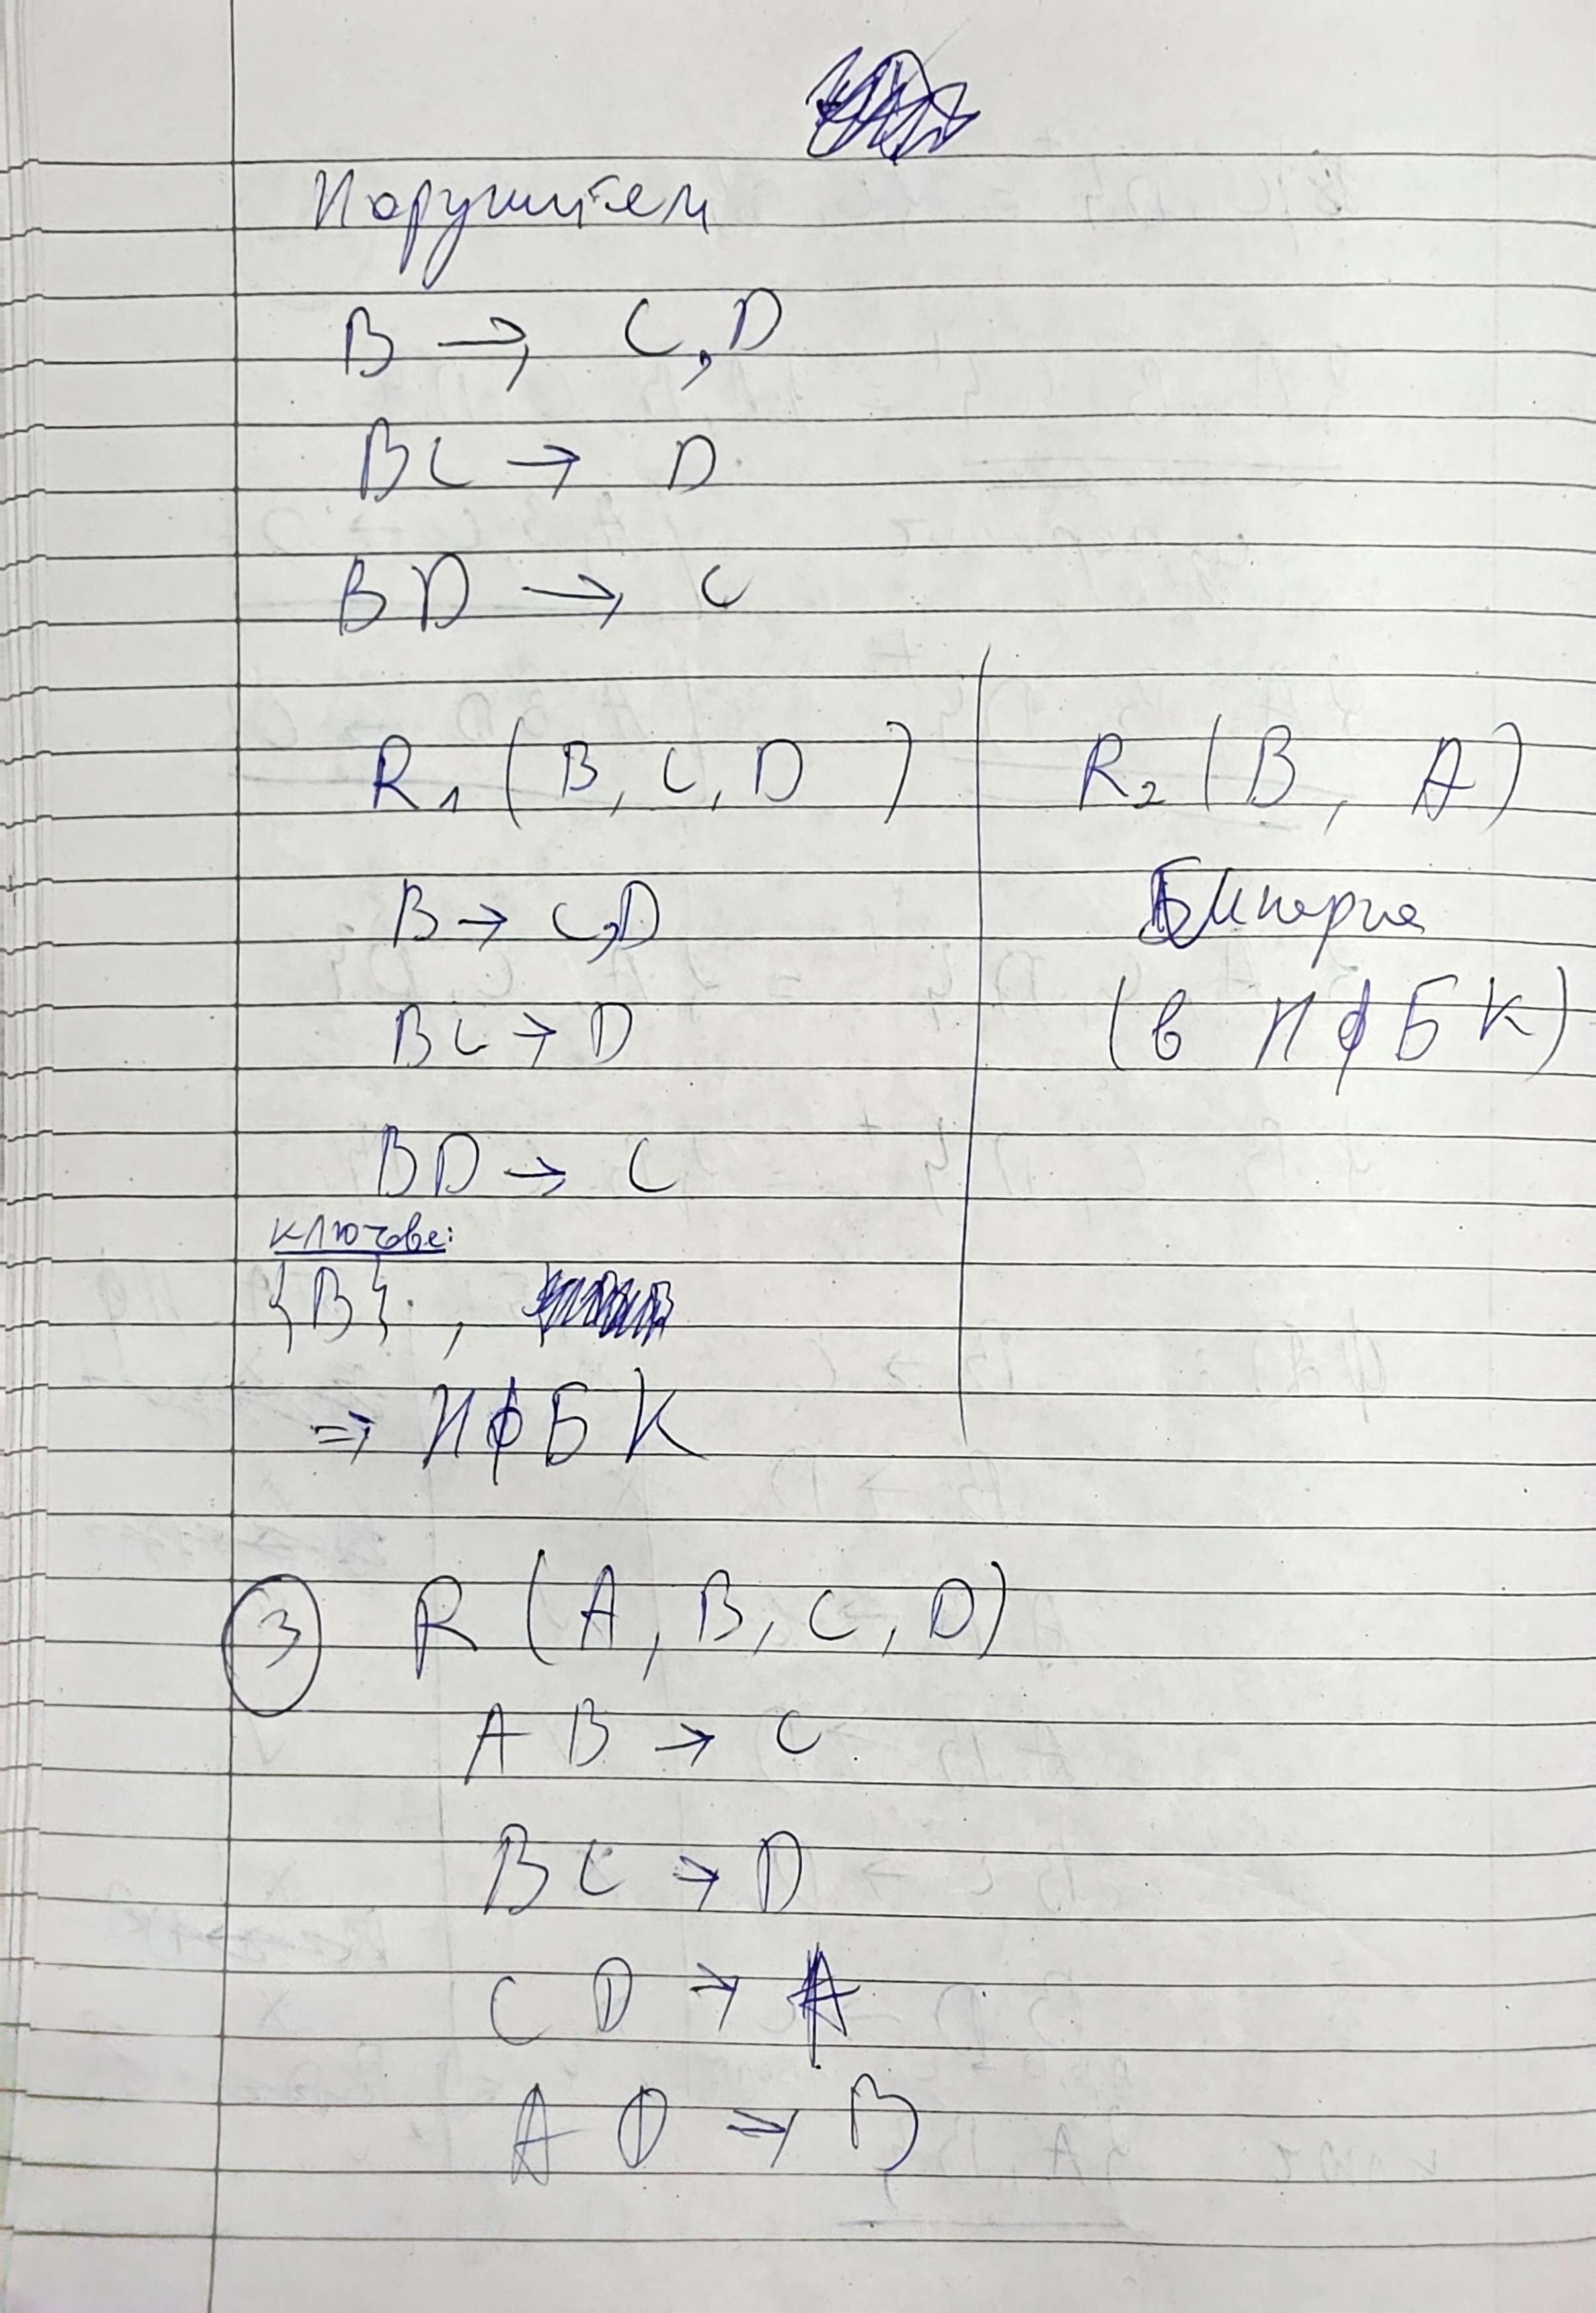 Нарушители
B → C, D
BC → D
BD → C
R1 ( B, C, D )
B → C, D
BC → D
BD → C
ключове:
{B} ,
⇒ НФБК
R2 ( B, A )
Бинарна
(в НФБК)
3 R ( A, B, C, D )
AB → C
BC → D
CD → A
AD → B